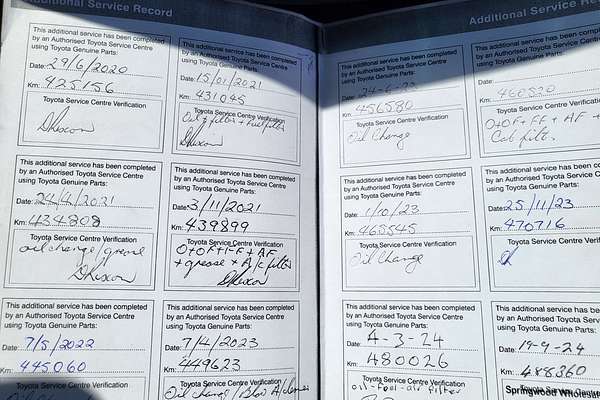 Additional Service Record
This additional service has been completed
by an Authorised Toyota Service Centre
using Toyota Genuine Parts:
Date: 29/6/2020
Km: 425156
Toyota Service Centre Verification
This additional service has been completed
by an Authorised Toyota Service Centre
using Toyota Genuine Parts:
Date: 15/01/2021
Km: 431045
Toyota Service Centre Verification
filter + fuel filter
This additional service has been completed
by an Authorised Toyota Service Centre
using Toyota Genuine Parts:
Date: 24/4/2021
Km: 434808
Toyota Service Centre Verification
oil change/grease
This additional service has been completed
by an Authorised Toyota Service Centre
using Toyota Genuine Parts:
Date: 3/11/2021
Km: 439899
Toyota Service Centre Verification
O+OF+FF+AF
+grease + A/c filter
This additional service has been completed
by an Authorised Toyota Service Centre
using Toyota Genuine Parts:
Date: 7/5/2022
Km: 445060
Toyota Service Centre Verification
This additional service has been completed
by an Authorised Toyota Service Centre
using Toyota Genuine Parts:
Date: 7/4/2023
Km: 449623
Toyota Service Centre Verification
Oil change/Blow A/cleaner
Additional Service Rec
This additional service has been completed
by an Authorised Toyota Service Centre
using Toyota Genuine Parts:
Date: 24-6-23
Km: 456580
Toyota Service Centre Verification
Oil Change
This additional service has been
by an Authorised Toyota Service
using Toyota Genuine Parts:
Date:
Km:
Toyota Service Centre Verif
O+OF+FF+AF+
Cab filter
This additional service has been completed
by an Authorised Toyota Service Centre
using Toyota Genuine Parts:
Date: 1/10/23
Km: 465545
Toyota Service Centre Verification
Oil Change
This additional service has been
by an Authorised Toyota Service
using Toyota Genuine Parts:
Date: 25/11/23
Km: 470716
Toyota Service Centre Verif
This additional service has been completed
by an Authorised Toyota Service Centre
using Toyota Genuine Parts:
Date: 4-3-24
Km: 480026
Toyota Service Centre Verification
oil-fuel-air filter
This additional service has been
by an Authorised Toyota Service
using Toyota Genuine Parts:
Date: 19-9-24
Km: 488360
Springwood Wholesa